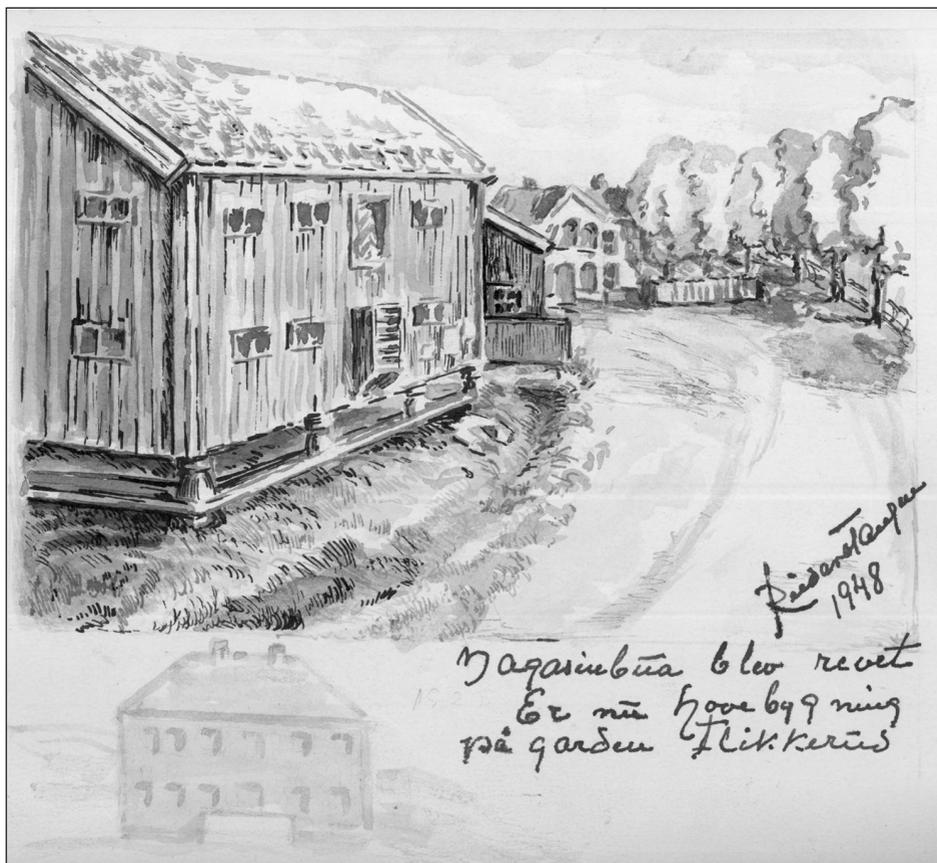 1948
Magasinbua blev revet
Er nu hovebygning
på garden Flikkerud